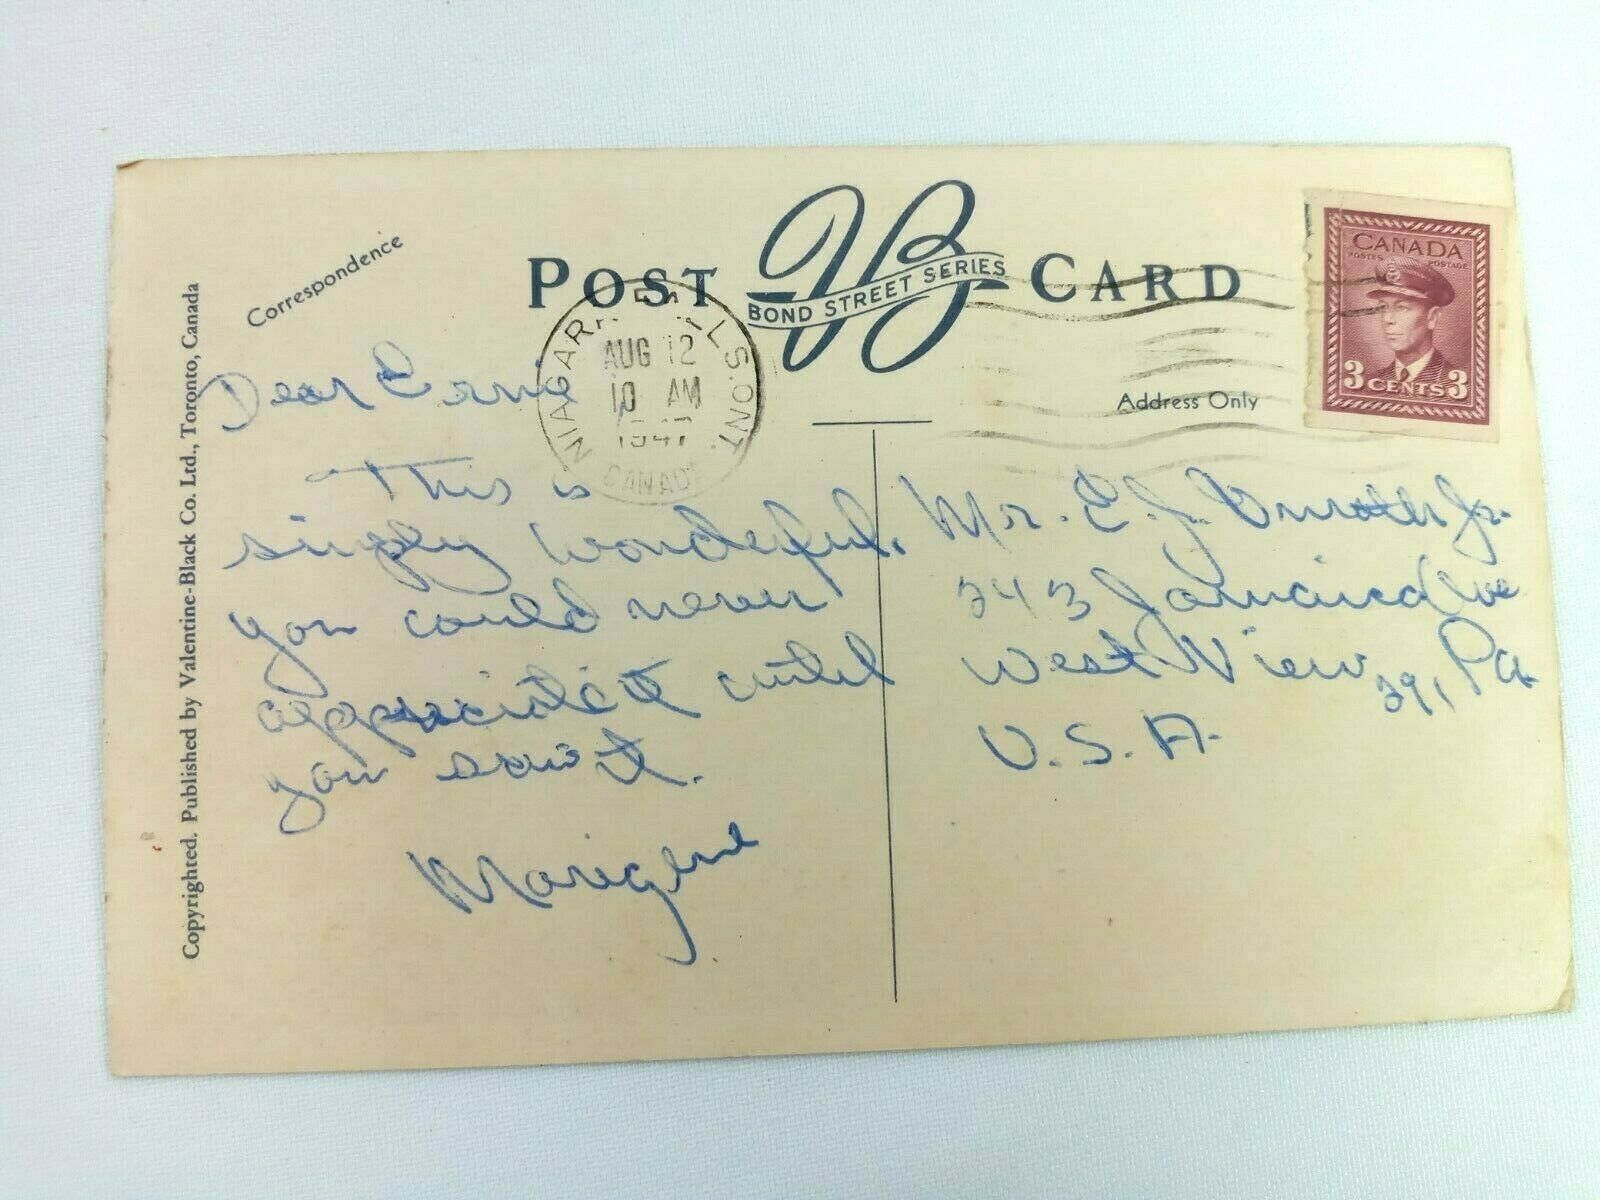 Correspondence
POST CARD
VB
BOND STREET SERIES
Address Only
CANADA
POSTES POSTAGE
3 CENTS 3
NIAGARA FALLS. ONT.
AUG 12
10 AM
1947
CANADA
Copyrighted. Published by Valentine-Black Co. Ltd., Toronto, Canada
Dear Ernie
This is
simply wonderful,
you could never
appreciate it until
you saw it.
Marigene
Mr. E. J. Jr.
243 Jamaica Ave
West View 29, Pa
U.S.A.